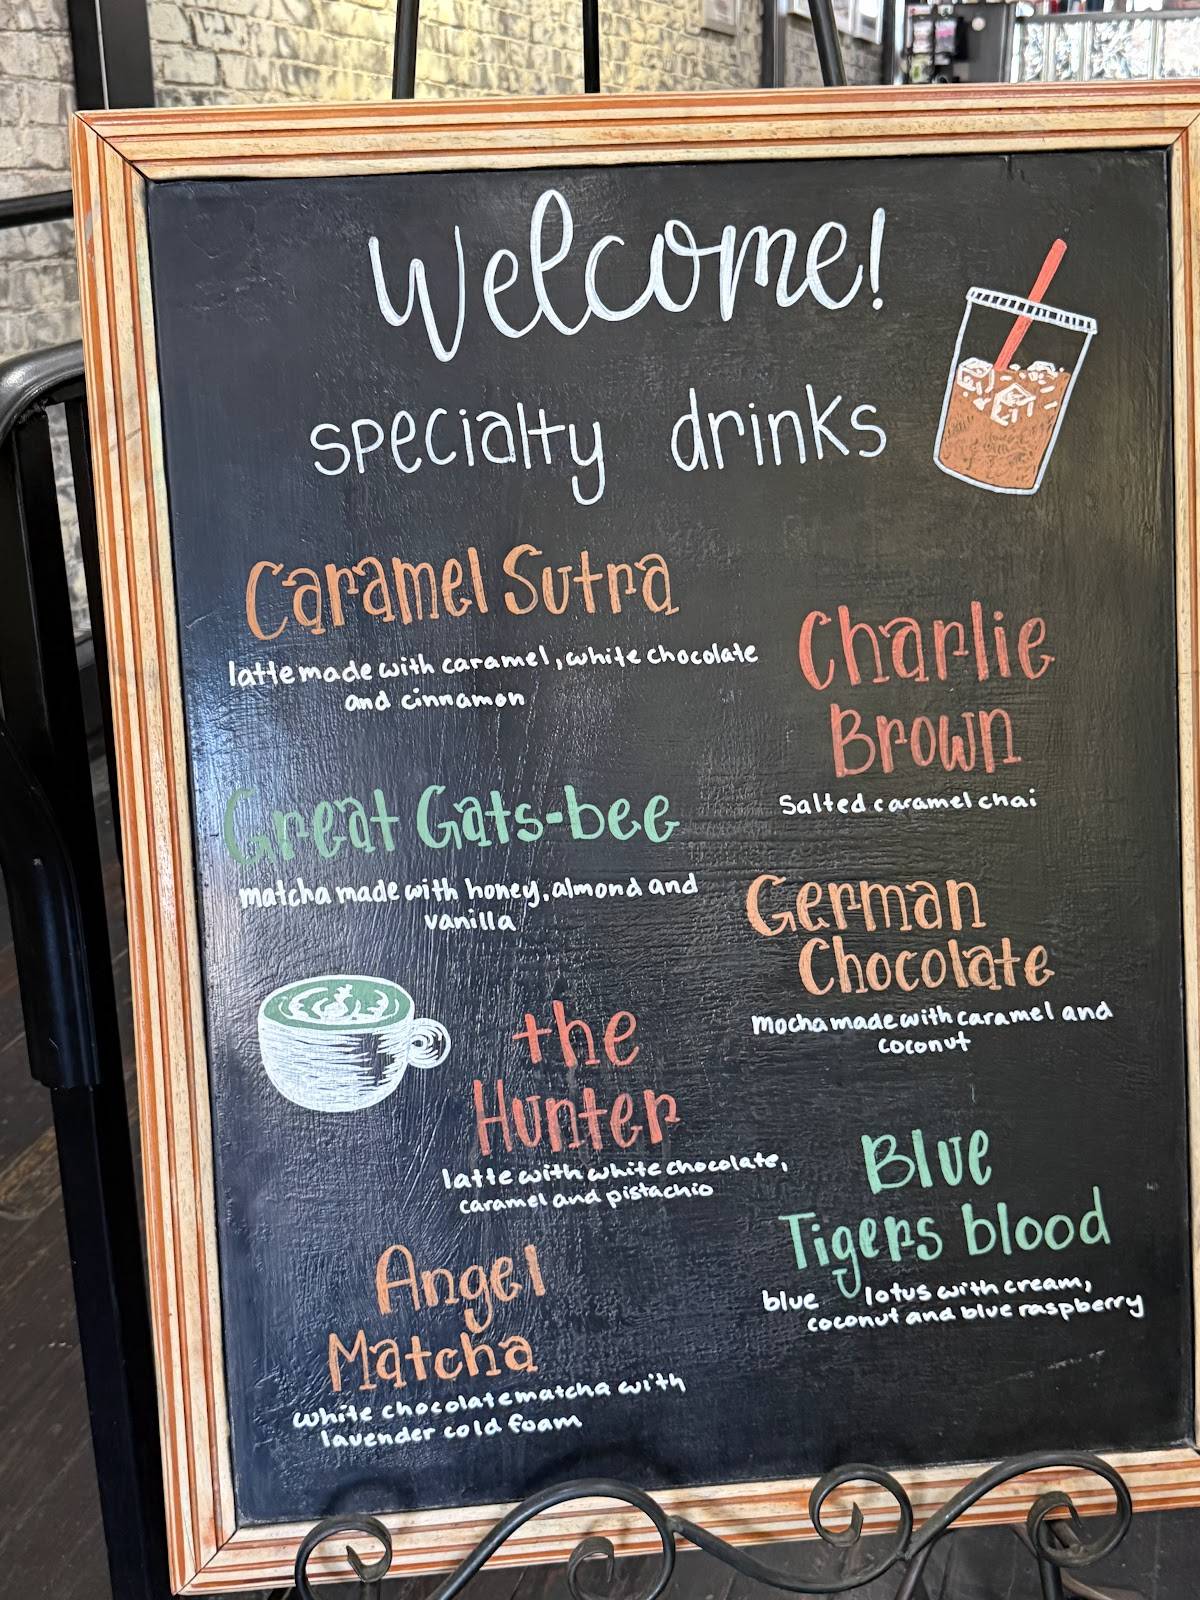 Welcome!
specialty drinks
Caramel Sutra
latte made with caramel, white chocolate
and cinnamon
Charlie
Brown
Salted caramel chai
Great Gats-bee
matcha made with honey, almond and
vanilla
German
Chocolate
Mocha made with caramel and
coconut
the
Hunter
latte with white chocolate,
caramel and pistachio
Blue
Tigers blood
blue lotus with cream,
coconut and blue raspberry
Angel
Matcha
white chocolate matcha with
lavender cold foam